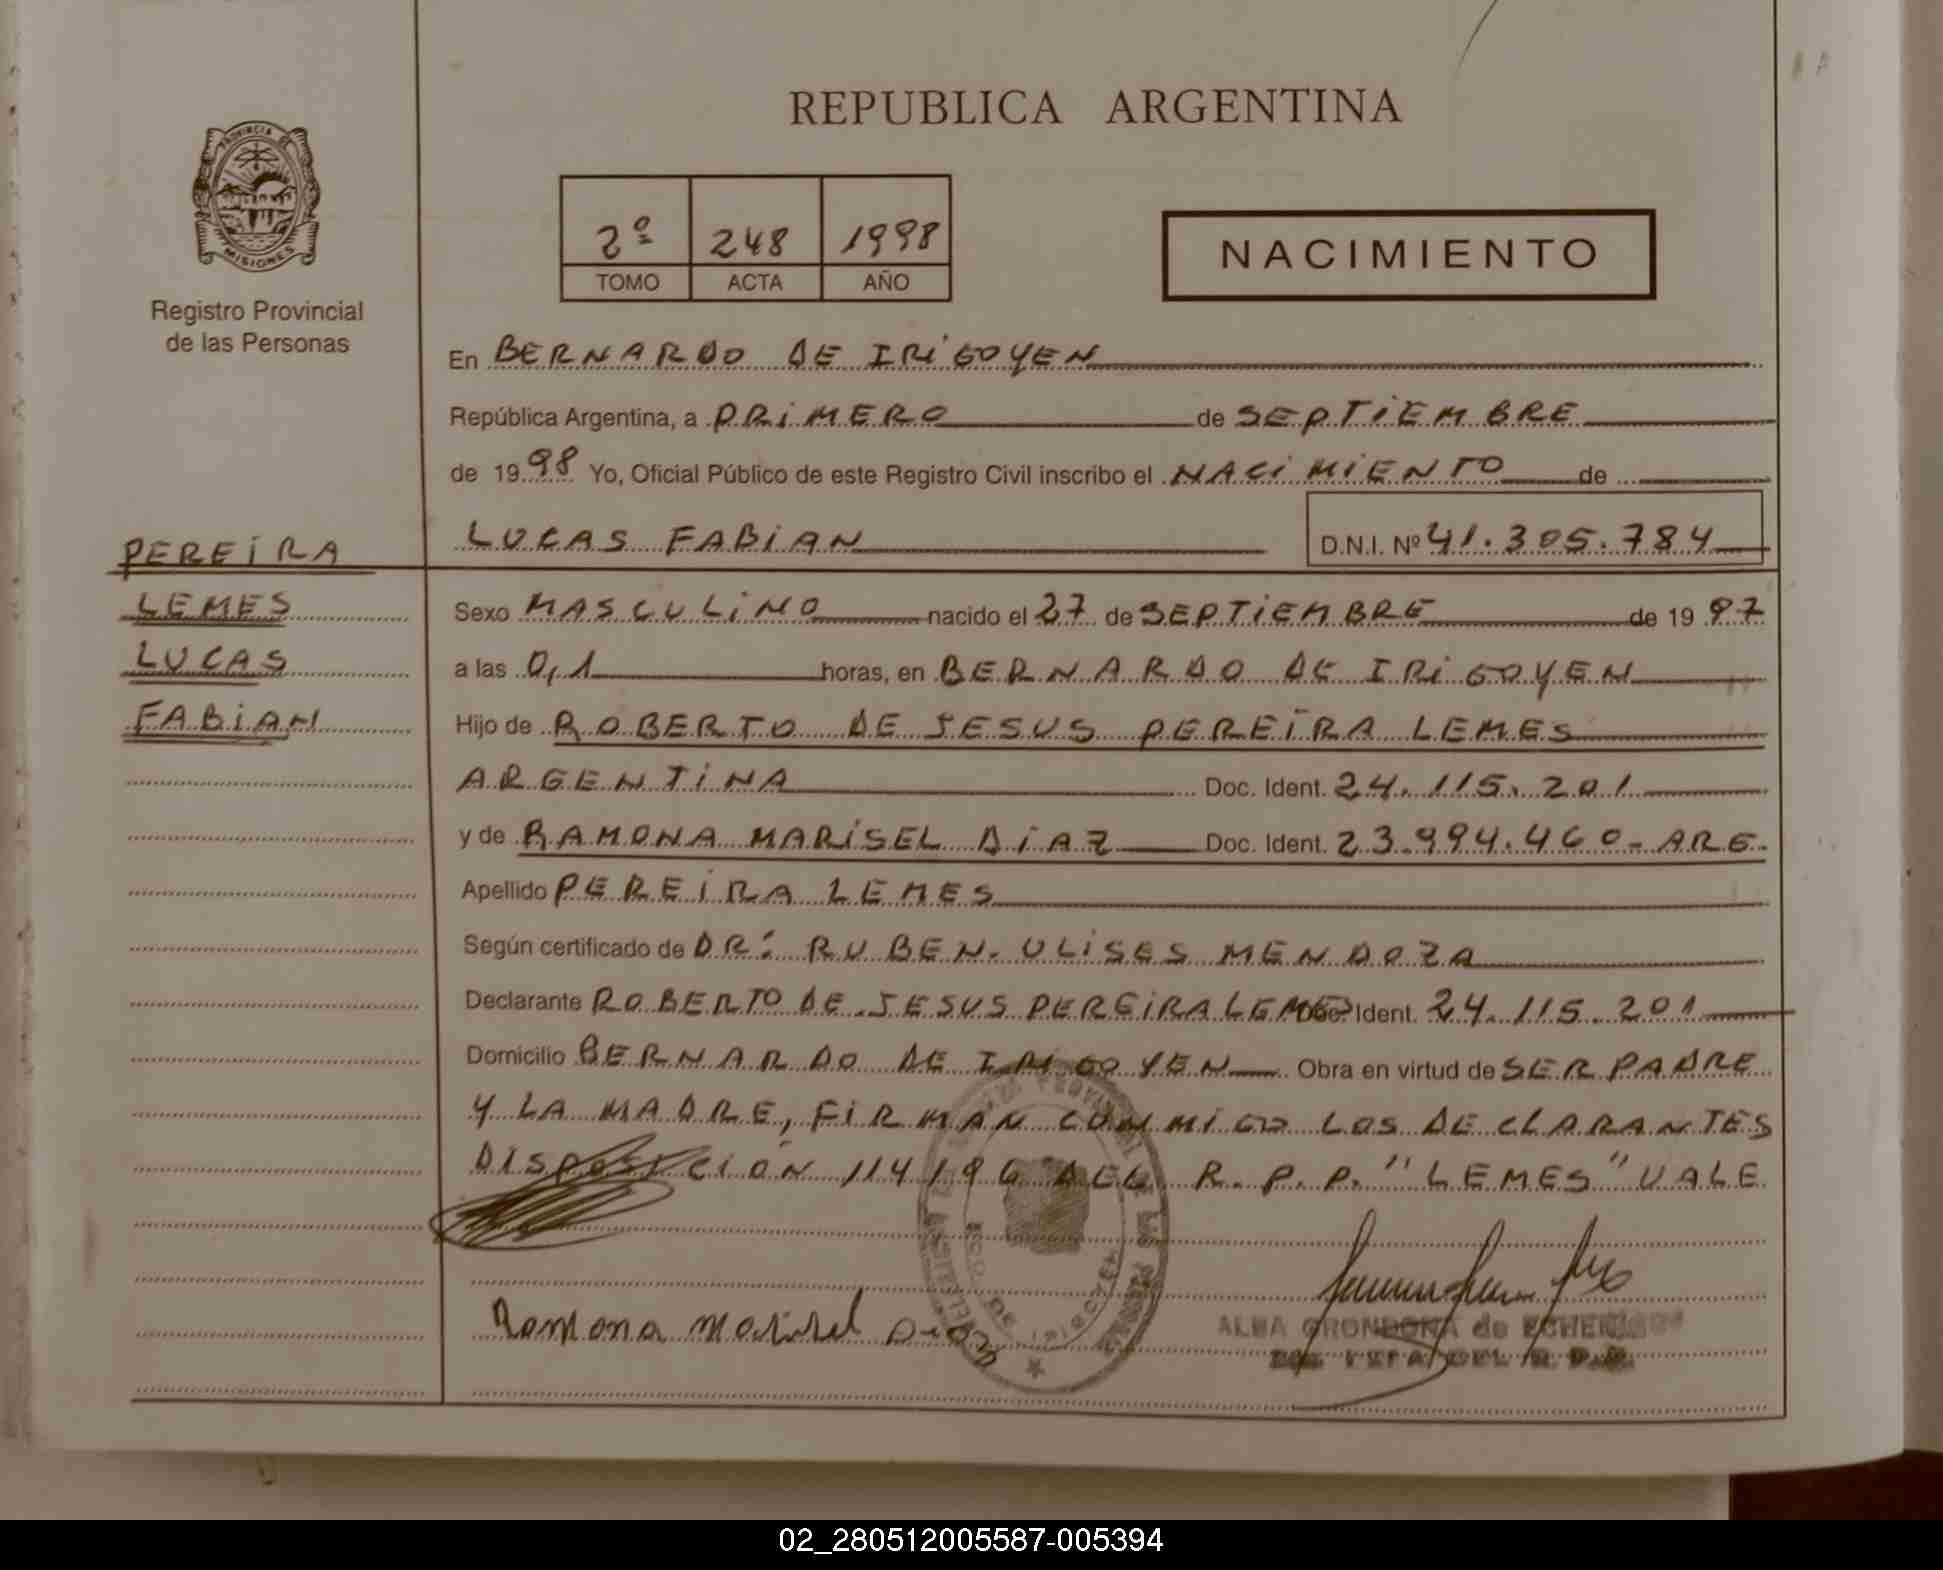 REPUBLICA ARGENTINA
PROVINCIA DE
MISIONES
Registro Provincial
de las Personas
2º 248 1998
TOMO ACTA AÑO
NACIMIENTO
En BERNARDO DE IRIGOYEN
República Argentina, a PRIMERO de SEPTIEMBRE
de 1998 Yo, Oficial Público de este Registro Civil inscribo el NACIMIENTO de
LUCAS FABIAN D.N.I. Nº 41.305.784
PEREIRA
LEMES
LUCAS
FABIAN
Sexo MASCULINO nacido el 27 de SEPTIEMBRE de 1997
a las 0,1 horas, en BERNARDO DE IRIGOYEN
Hijo de ROBERTO DE JESUS PEREIRA LEMES
ARGENTINA Doc. Ident. 24.115.201
y de RAMONA MARISEL DIAZ Doc. Ident. 23.994.460-ARG.
Apellido PEREIRA LEMES
Según certificado de DR: RUBEN. ULISES MENDOZA
Declarante ROBERTO DE JESUS PEREIRA LEMES Doc. Ident. 24.115.201
Domicilio BERNARDO DE IRIGOYEN Obra en virtud de SER PADRE
Y LA MADRE, FIRMAN CONMIGO LOS DECLARANTES
DISPOSICIÓN 114196 DEL R.P.P. "LEMES" VALE
Ramona Marisel Diaz
ALBA GRONDONA de
DEL R.P.P.
02_280512005587-005394